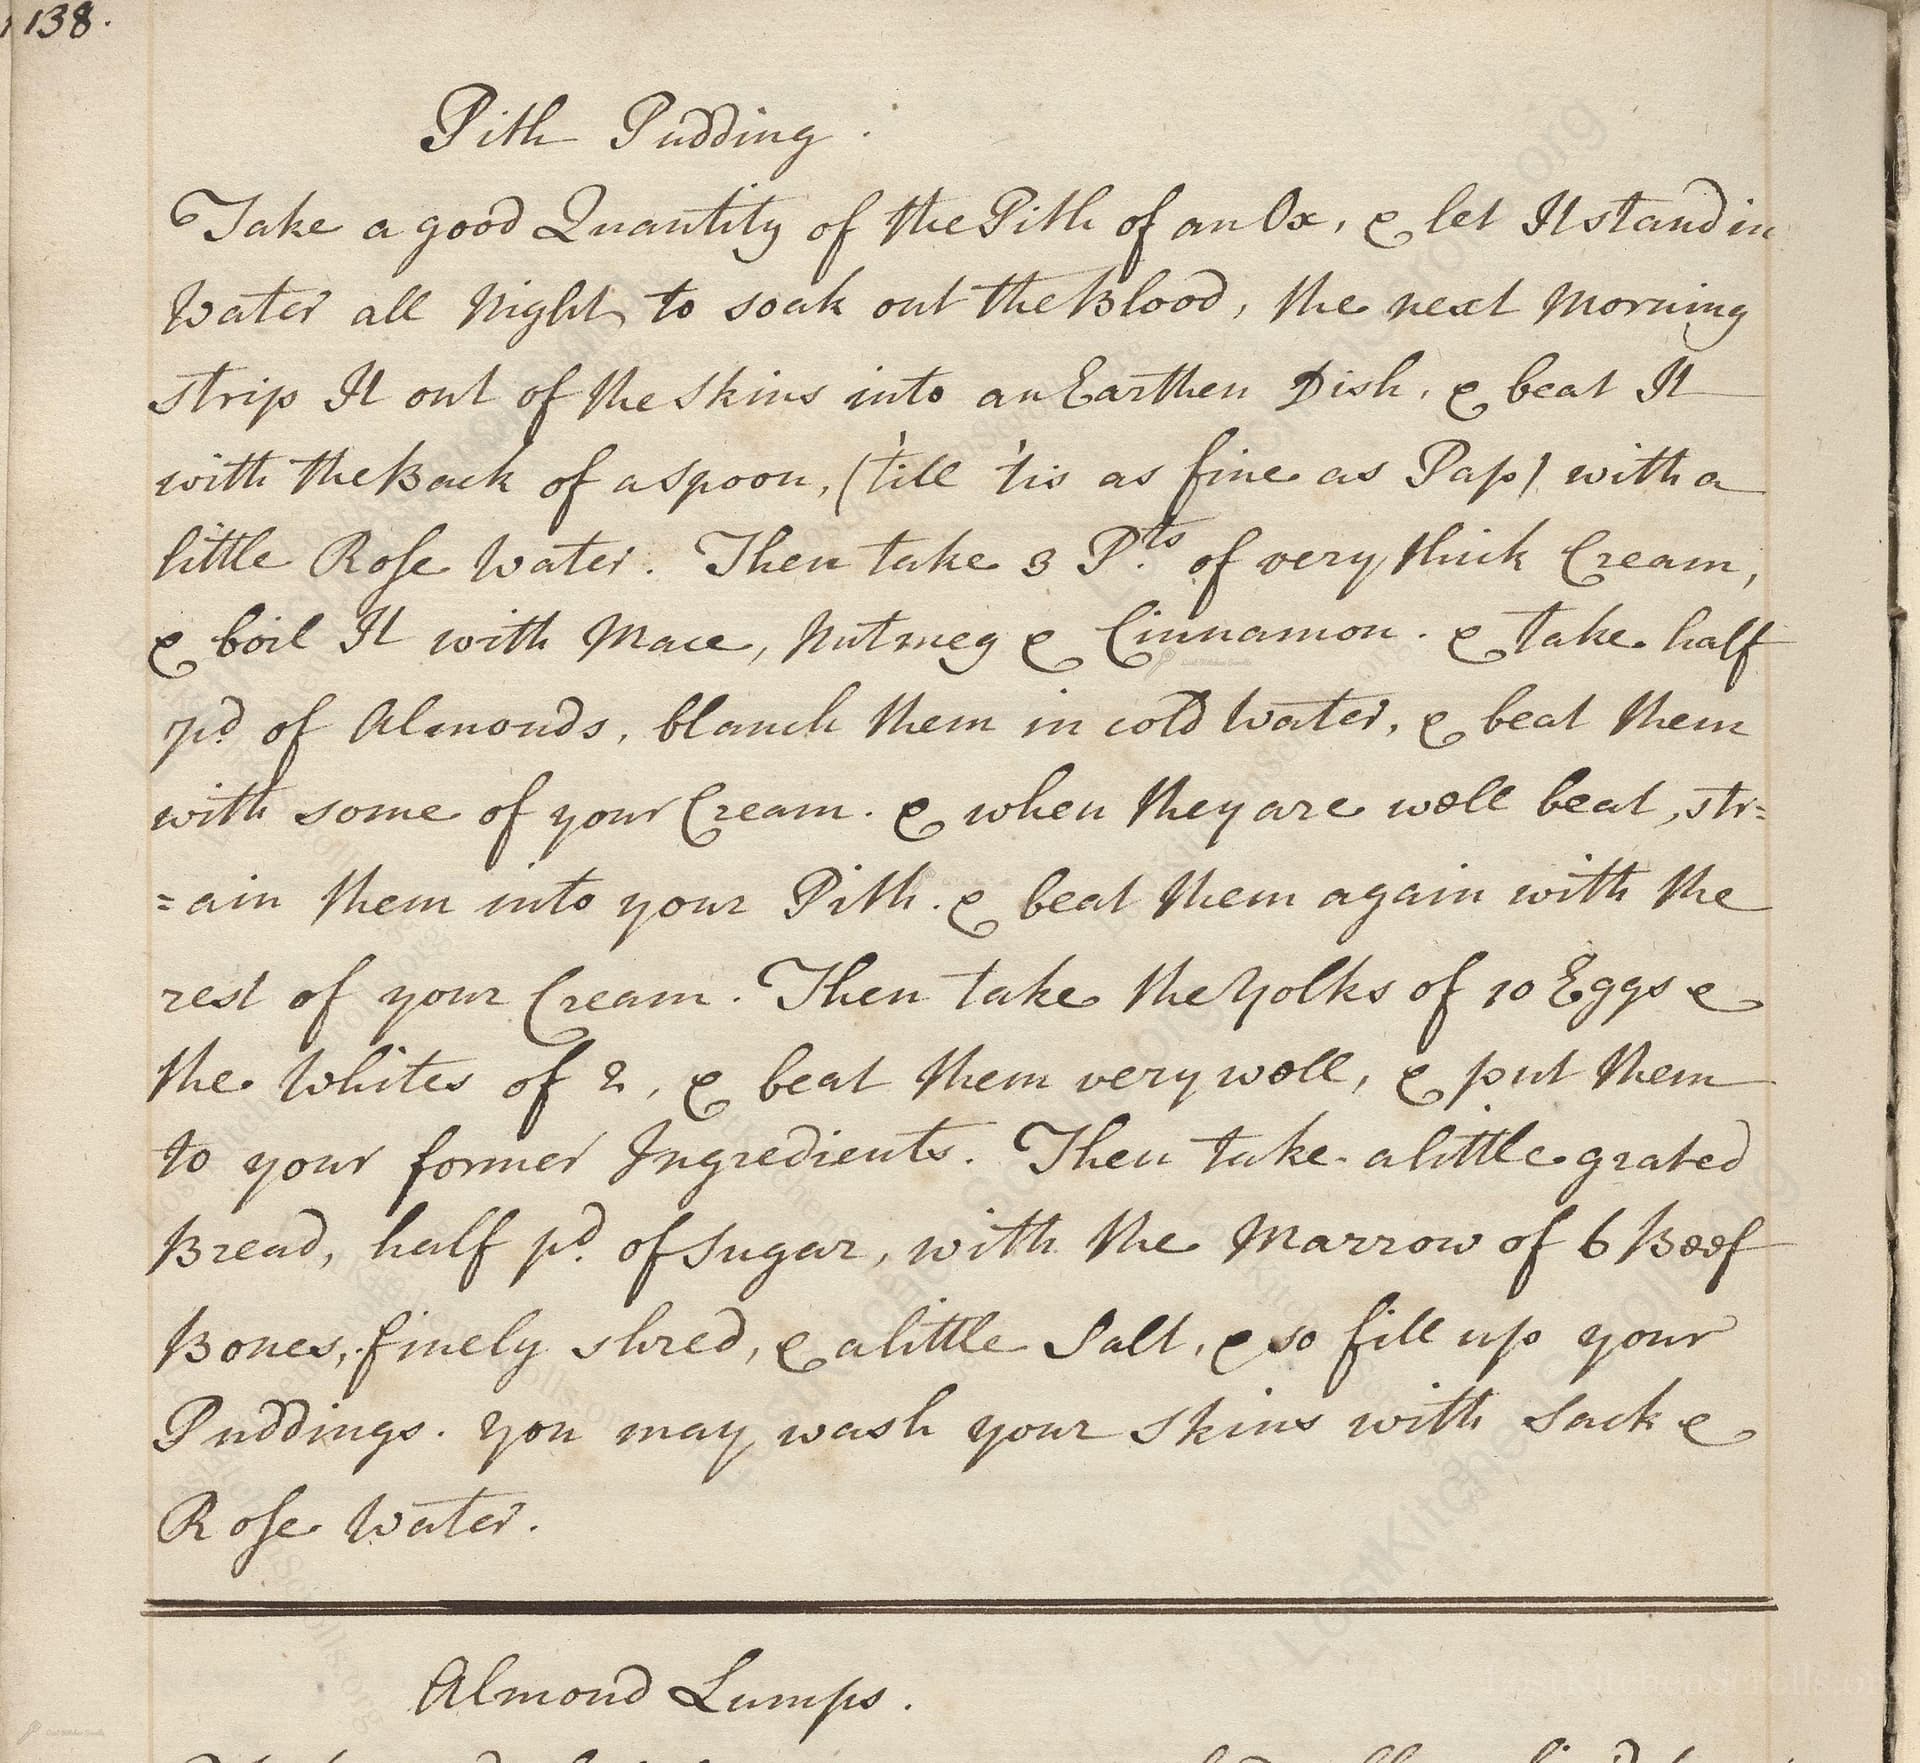 138.
Pith Pudding.
Take a good Quantity of the Pith of an Ox, & let It stand in
Water all Night, to soak out the Blood, the next Morning
strip It out of the Skins into an Earthen Dish, & beat It
with the Back of a spoon, ('till 'tis as fine as Pap) with a
little Rose Water. Then take 3 P.ts of very thick Cream,
& boil It with Mace, Nutmeg & Cinnamon. & take half
pd. of Almonds, blanch them in cold Water, & beat them
with some of your Cream. & when they are well beat, str=
=ain them into your Pith. & beat them again with the
rest of your Cream. Then take the Yolks of 10 Eggs &
the Whites of 2, & beat them very well, & put them
to your former Ingredients. Then take a little grated
Bread, half pd. of Sugar, with the Marrow of 6 Beef
Bones, finely shred, & a little Salt, & so fill up your
Puddings. You may wash your Skins with Sack &
Rose Water.
Almond Lumps.
LostKitchenScrolls.org